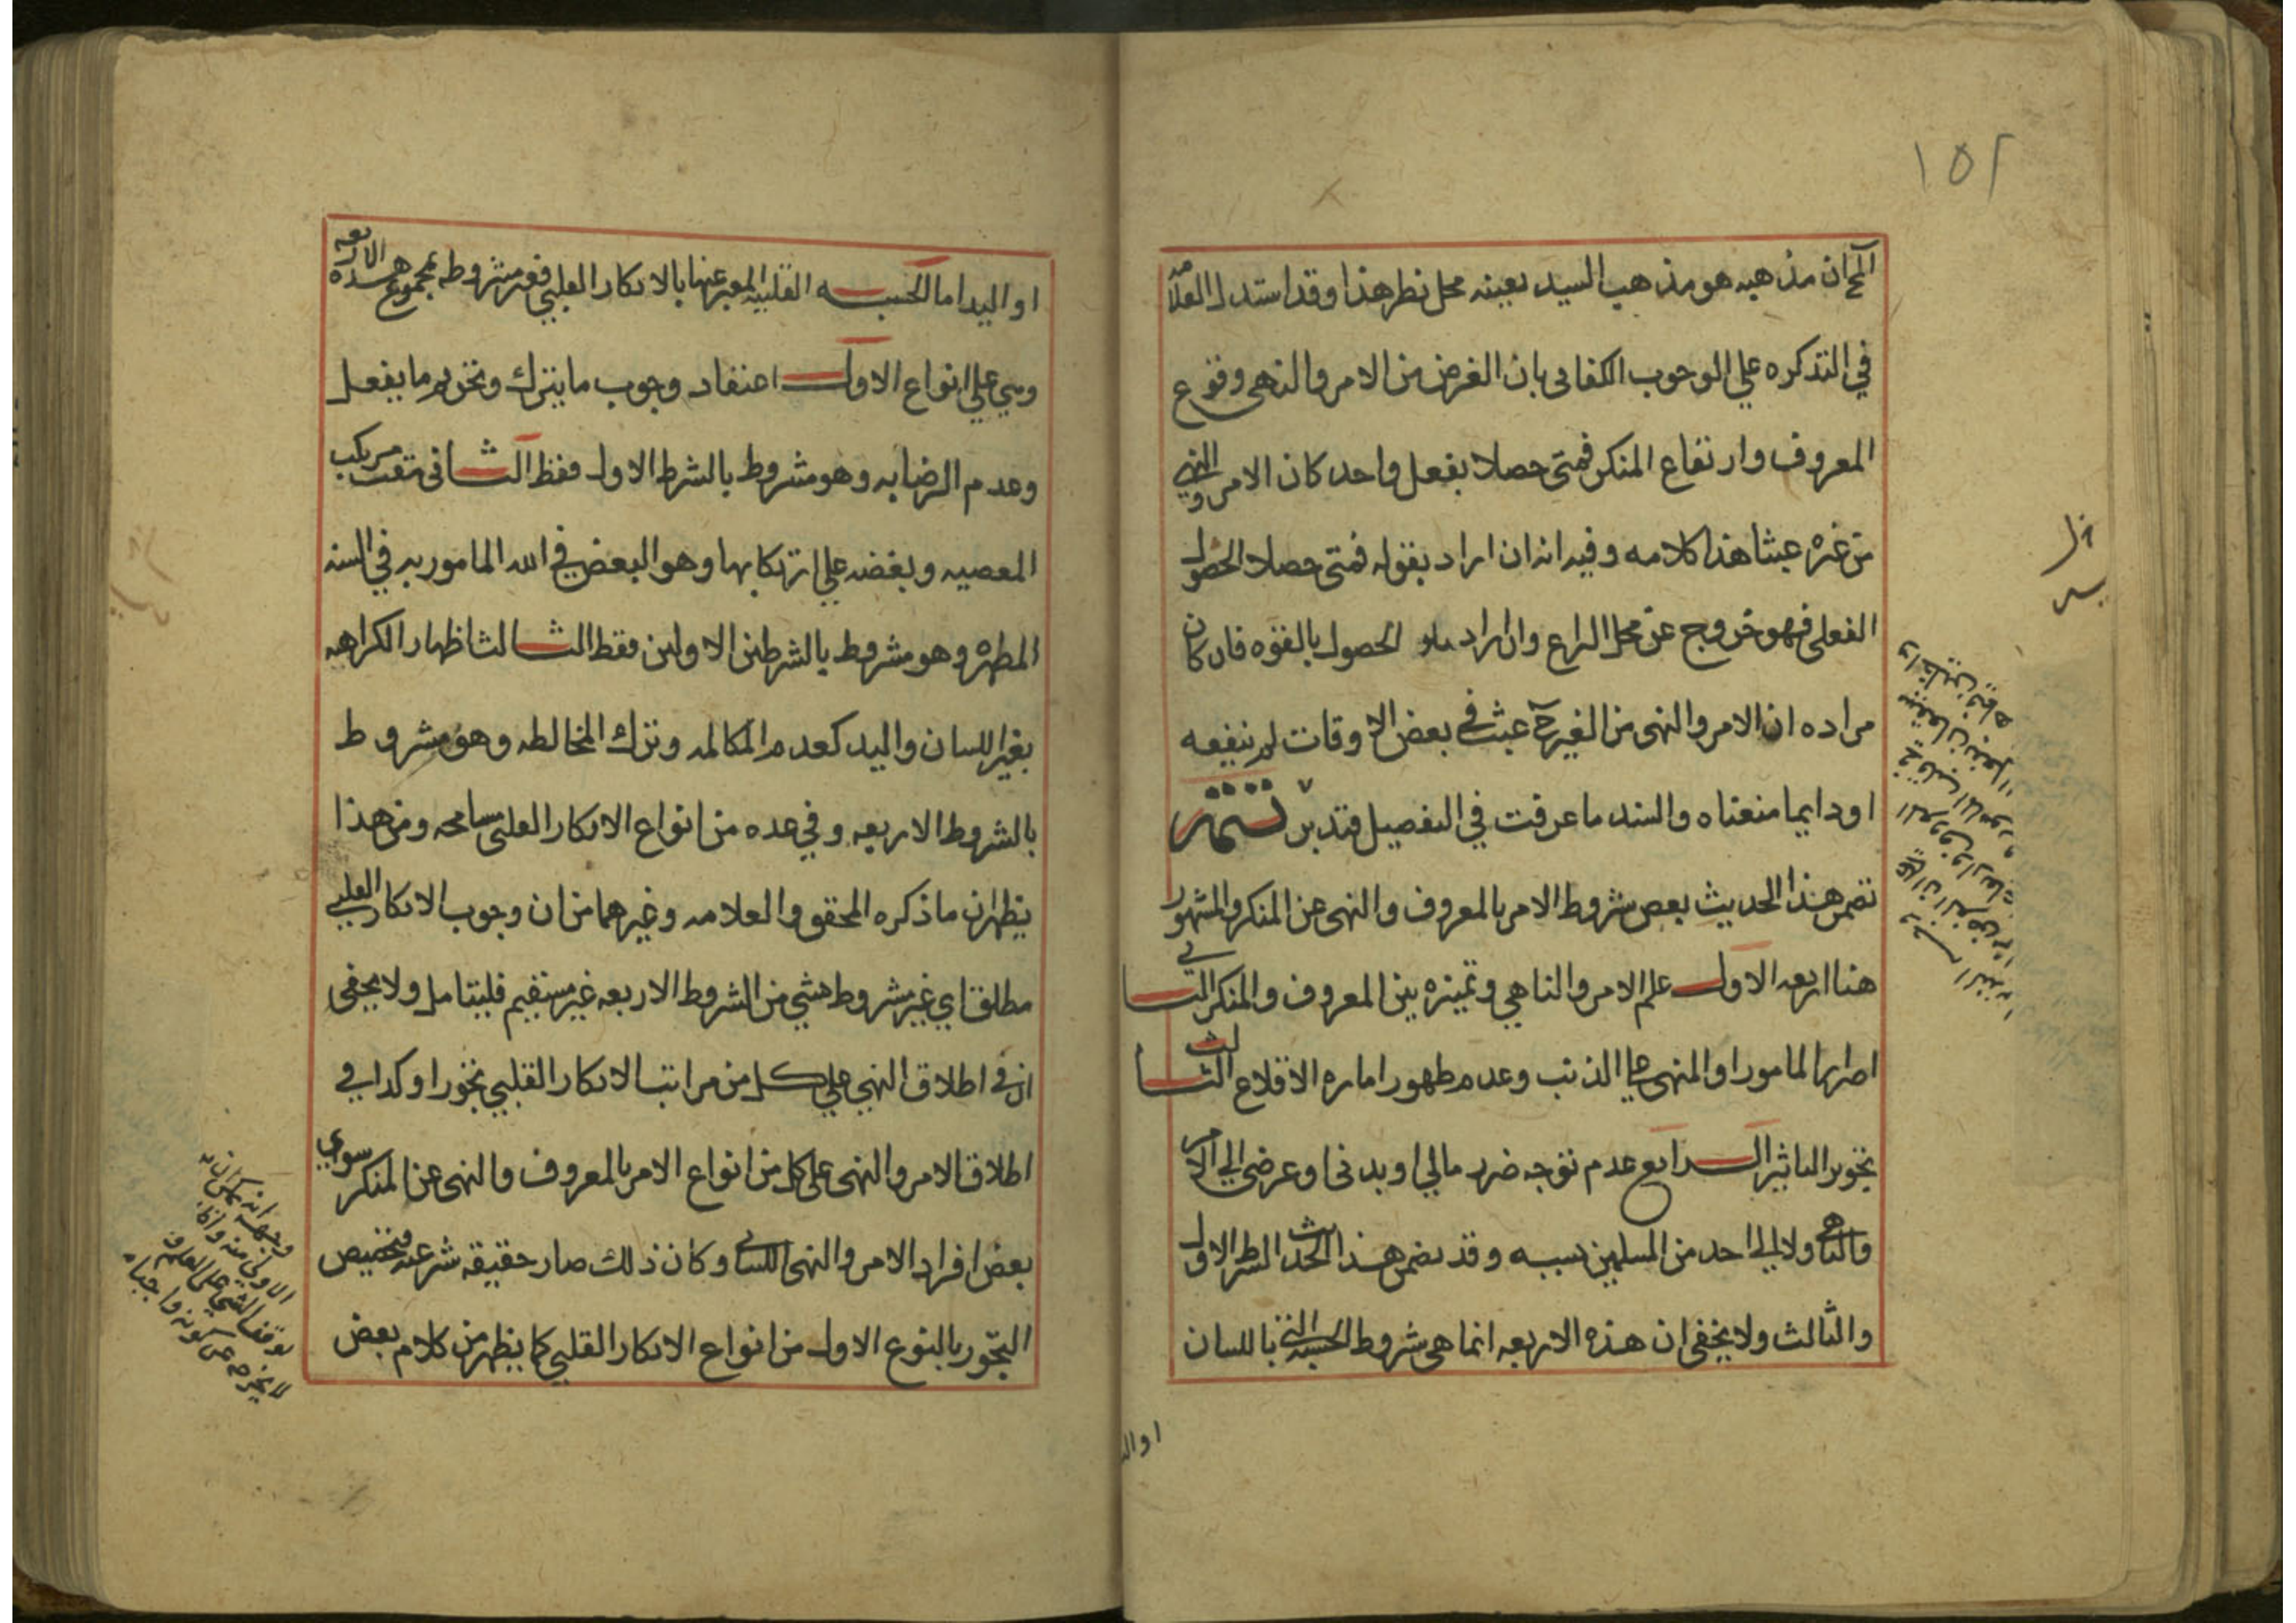 ١٥٢
ان مذهبه هو مذهب السيد بعينه محل نظر هذا وقد استدل العلامه
في التذكره علي الوجوب الكفائى بان الغرض من الامر والنهى وقوع
المعروف وارتفاع المنكر فمتى حصلا بفعل واحد كان الامر والنهي
من غيره عبثا هذا كلامه وفيه انه ان اراد بقوله فمتى حصلا الحصول
الفعلى فهو خروج عن محل النزاع وان اراد الحصول بالقوه فان كان
مراده ان الامر والنهى من الغير ح عبث في بعض الاوقات لم ينفعه
او دايما منعناه والسند ما عرفت في التفصيل فتدبر تتمة
تضمن هذا الحديث بعض شروط الامر بالمعروف والنهى عن المنكر والمشهور
هنا اربعه الاول علم الامر والناهي وتميزه بين المعروف والمنكر الثانى
اصرار المامور او المنهى على الذنب وعدم ظهور اماره الاقلاع الثالث
تجويز التاثير الرابع عدم توجه ضرر مالي او بدنى او عرضى الى الامر
والناهى ولا الى احد من المسلمين بسببه وقد تضمن هذا الحديث الشرط الاول
والثالث ولا يخفى ان هذه الاربعه انما هى شروط الحسبه التى باللسان
او اليد اما الحسبه القلبيه المعبر عنها بالانكار القلبي فغير مشروط بمجموع هذه الاربعه
وهي علي انواع الاول اعتقاد وجوب ما يترك وتحريم ما يفعل
وعدم الرضا به وهو مشروط بالشرط الاول فقط الثانى مقت مرتكب
المعصيه وبغضه علي ارتكابها وهو البغض في الله المامور به في السنه
المطهره وهو مشروط بالشرطين الاولين فقط الثالث اظهار الكراهه
بغير اللسان واليد كعدم المكالمه وترك المخالطه وهو مشروط
بالشروط الاربعه وفي عده من انواع الانكار القلبى مسامحه ومن هذا
يظهر ان ما ذكره المحقق والعلامه وغيرهما من ان وجوب الانكار القلبي
مطلق اي غير مشروط بشي من الشروط الاربعه غير مستقيم فليتامل ولا يخفى
ان في اطلاق النهي علي كل من مراتب الانكار القلبي تجوزا وكذا في
اطلاق الامر والنهى على كل من انواع الامر بالمعروف والنهى عن المنكر سوي
بعض افراد الامر والنهى اللسانى وكان ذلك صار حقيقه شرعيه فتخصيص
التجوز بالنوع الاول من انواع الانكار القلبي كما يظهر من كلام بعض
وجهه انه يمكن ان
توقف الشي على العلم
لا يخرجه عن كونه واجبا